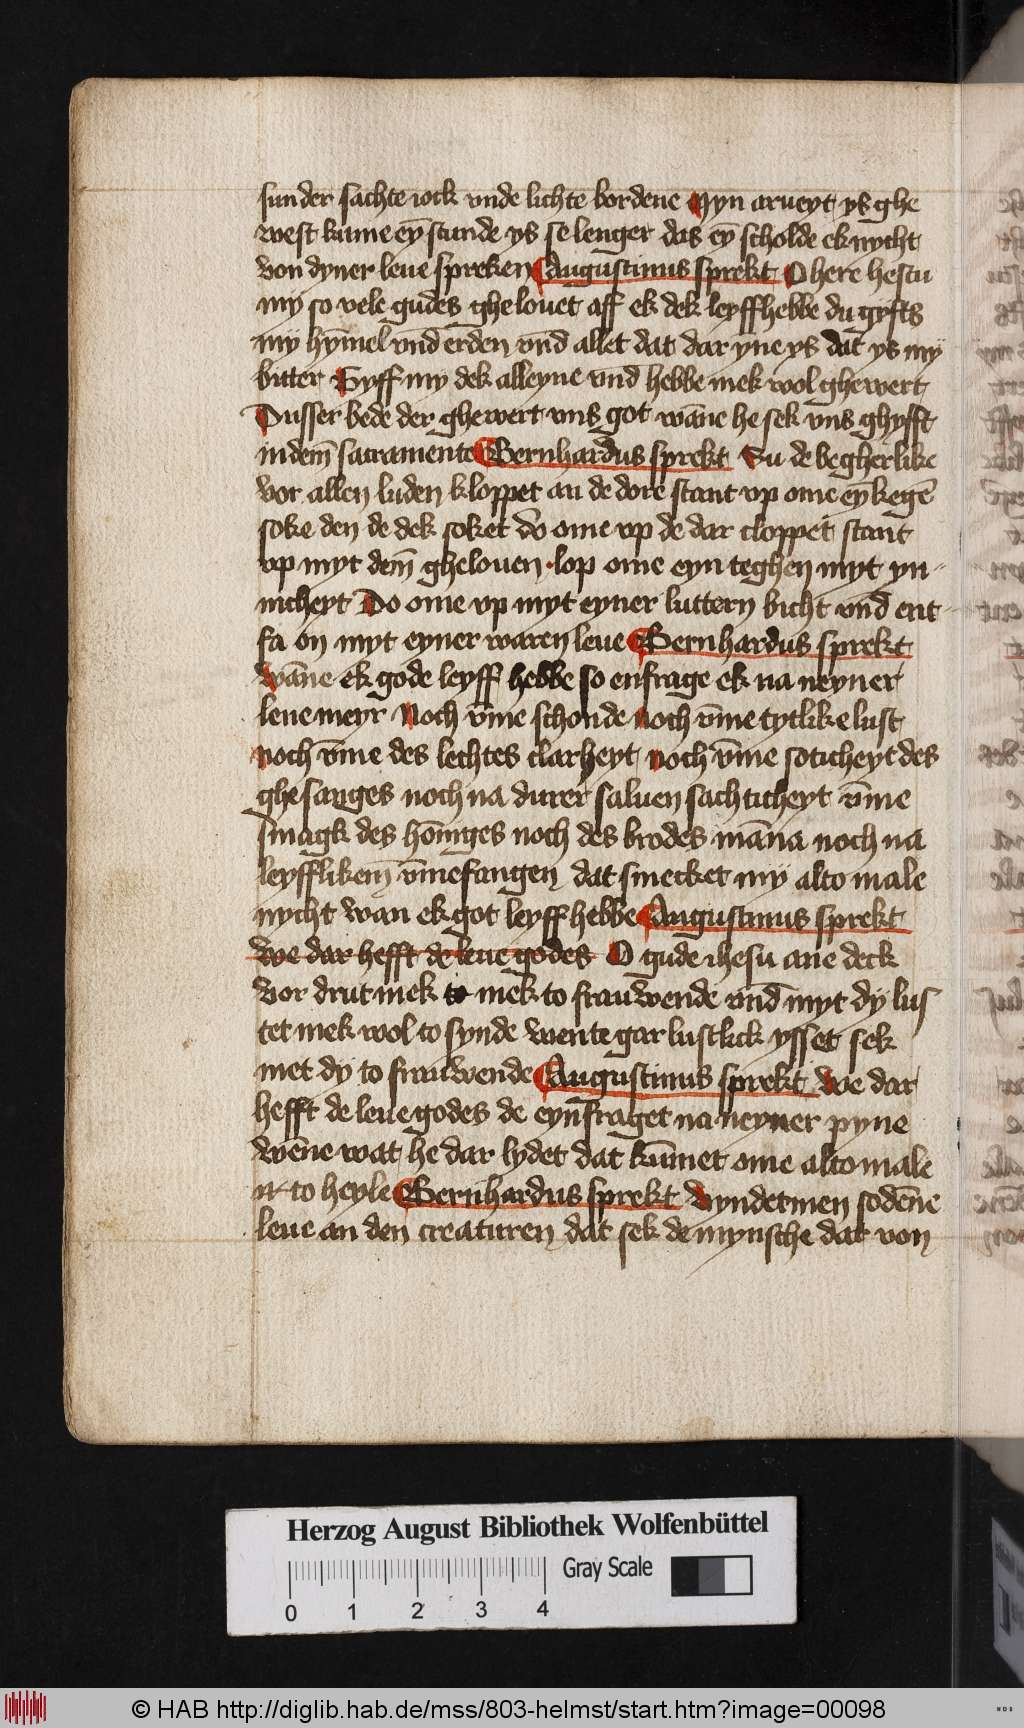 sunder sachte iock vnde lichte bordene Myn arueyt ys ghe
west kume eȳ stunde ys se lenger das eȳ scholde ek nycht
von dyner leue spreken Augustinus sprekt O here hestu
my so vele gudes ghelouet aff ek dek leyff hebbe du gyfts
my hȳmel vnd erden vnd allet dat dar yne ys dat ys my
bitter Gyff my dek alleyne vnd hebbe mek wol ghewert
Dusser bede der ghewert vns got wāne he sek vns ghyfft
in dem̄ sacramente Bernhardus sprekt Su de begherlike
vor allen luden kloppet an de dore stant vp ome eȳ kegē
soke den de dek soket do ome vp de dar cloppet stant
vp myt dem̄ ghelouen lop ome eyn teghen myt yn
nicheyt Do ome vp myt eyner luttern bicht vnd ent
fa on myt eyner waren leue Bernhardus sprekt
wāne ek gode leyff hebbe so enfrage ek na neyner
leue meyr Noch v̄me schonde noch v̄me tytlike lust
noch v̄me des lechtes clarheyt noch v̄me soticheyt des
ghesanges noch na durer saluen sachticheyt v̄me
smagk des hōniges noch des brodes māna noch na
leyfflikem̄ v̄mefangen dat smecket my alto male
nycht wan ek got leyff hebbe Augustinus sprekt
we dar hefft de leue godes O gude ihesu ane deck
vor drut mek to mek to frauwende vnd myt dy lus
tet mek wol to synde wente gar lustlick ysset sek
met dy to frauwende Augustinus sprekt we dar
hefft de leue godes de eynfraget na neyner pyne
wēne wat he dar lydet dat kūmet ome alto male
to heyle Bernhardus sprekt vyndet men sodēne
leue an den creaturen dat sek de mynsche dar von
Herzog August Bibliothek Wolfenbüttel
Gray Scale
0 1 2 3 4
© HAB http://diglib.hab.de/mss/803-helmst/start.htm?image=00098